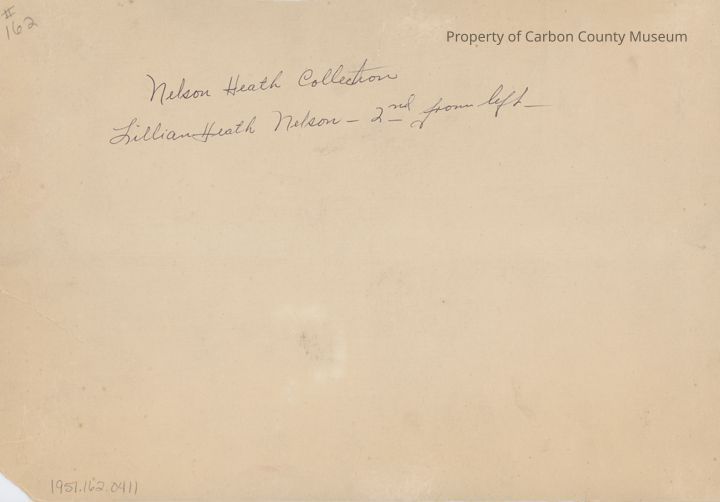 #
162
Property of Carbon County Museum
Nelson Heath Collection
Lillian Heath Nelson – 2nd from left –
1951.162.0411